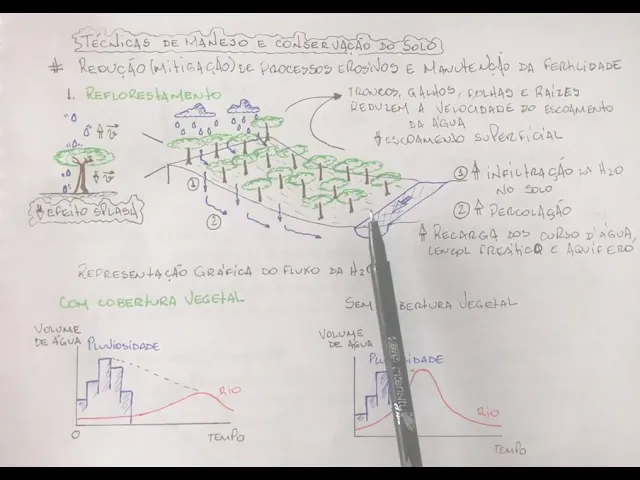 TÉCNICAS DE MANEJO E CONSERVAÇÃO DO SOLO
# REDUÇÃO (MITIGAÇÃO) DE PROCESSOS EROSIVOS E MANUTENÇÃO DA FERTILIDADE
1. REFLORESTAMENTO
TRONCOS, GALHOS, FOLHAS E RAÍZES
REDUZEM A VELOCIDADE DO ESCOAMENTO
DA ÁGUA
ESCOAMENTO SUPERFICIAL
EFEITO SPLASH
1
2
1 INFILTRAÇÃO DA H2O
NO SOLO
2 PERCOLAÇÃO
RECARGA DOS CURSO D'ÁGUA,
LENÇOL FREÁTICO E AQUÍFERO
REPRESENTAÇÃO GRÁFICA DO FLUXO DA H2O
COM COBERTURA VEGETAL
VOLUME
DE ÁGUA
PLUVIOSIDADE
RIO
0
TEMPO
SEM COBERTURA VEGETAL
VOLUME
DE ÁGUA
RIO
TEMPO